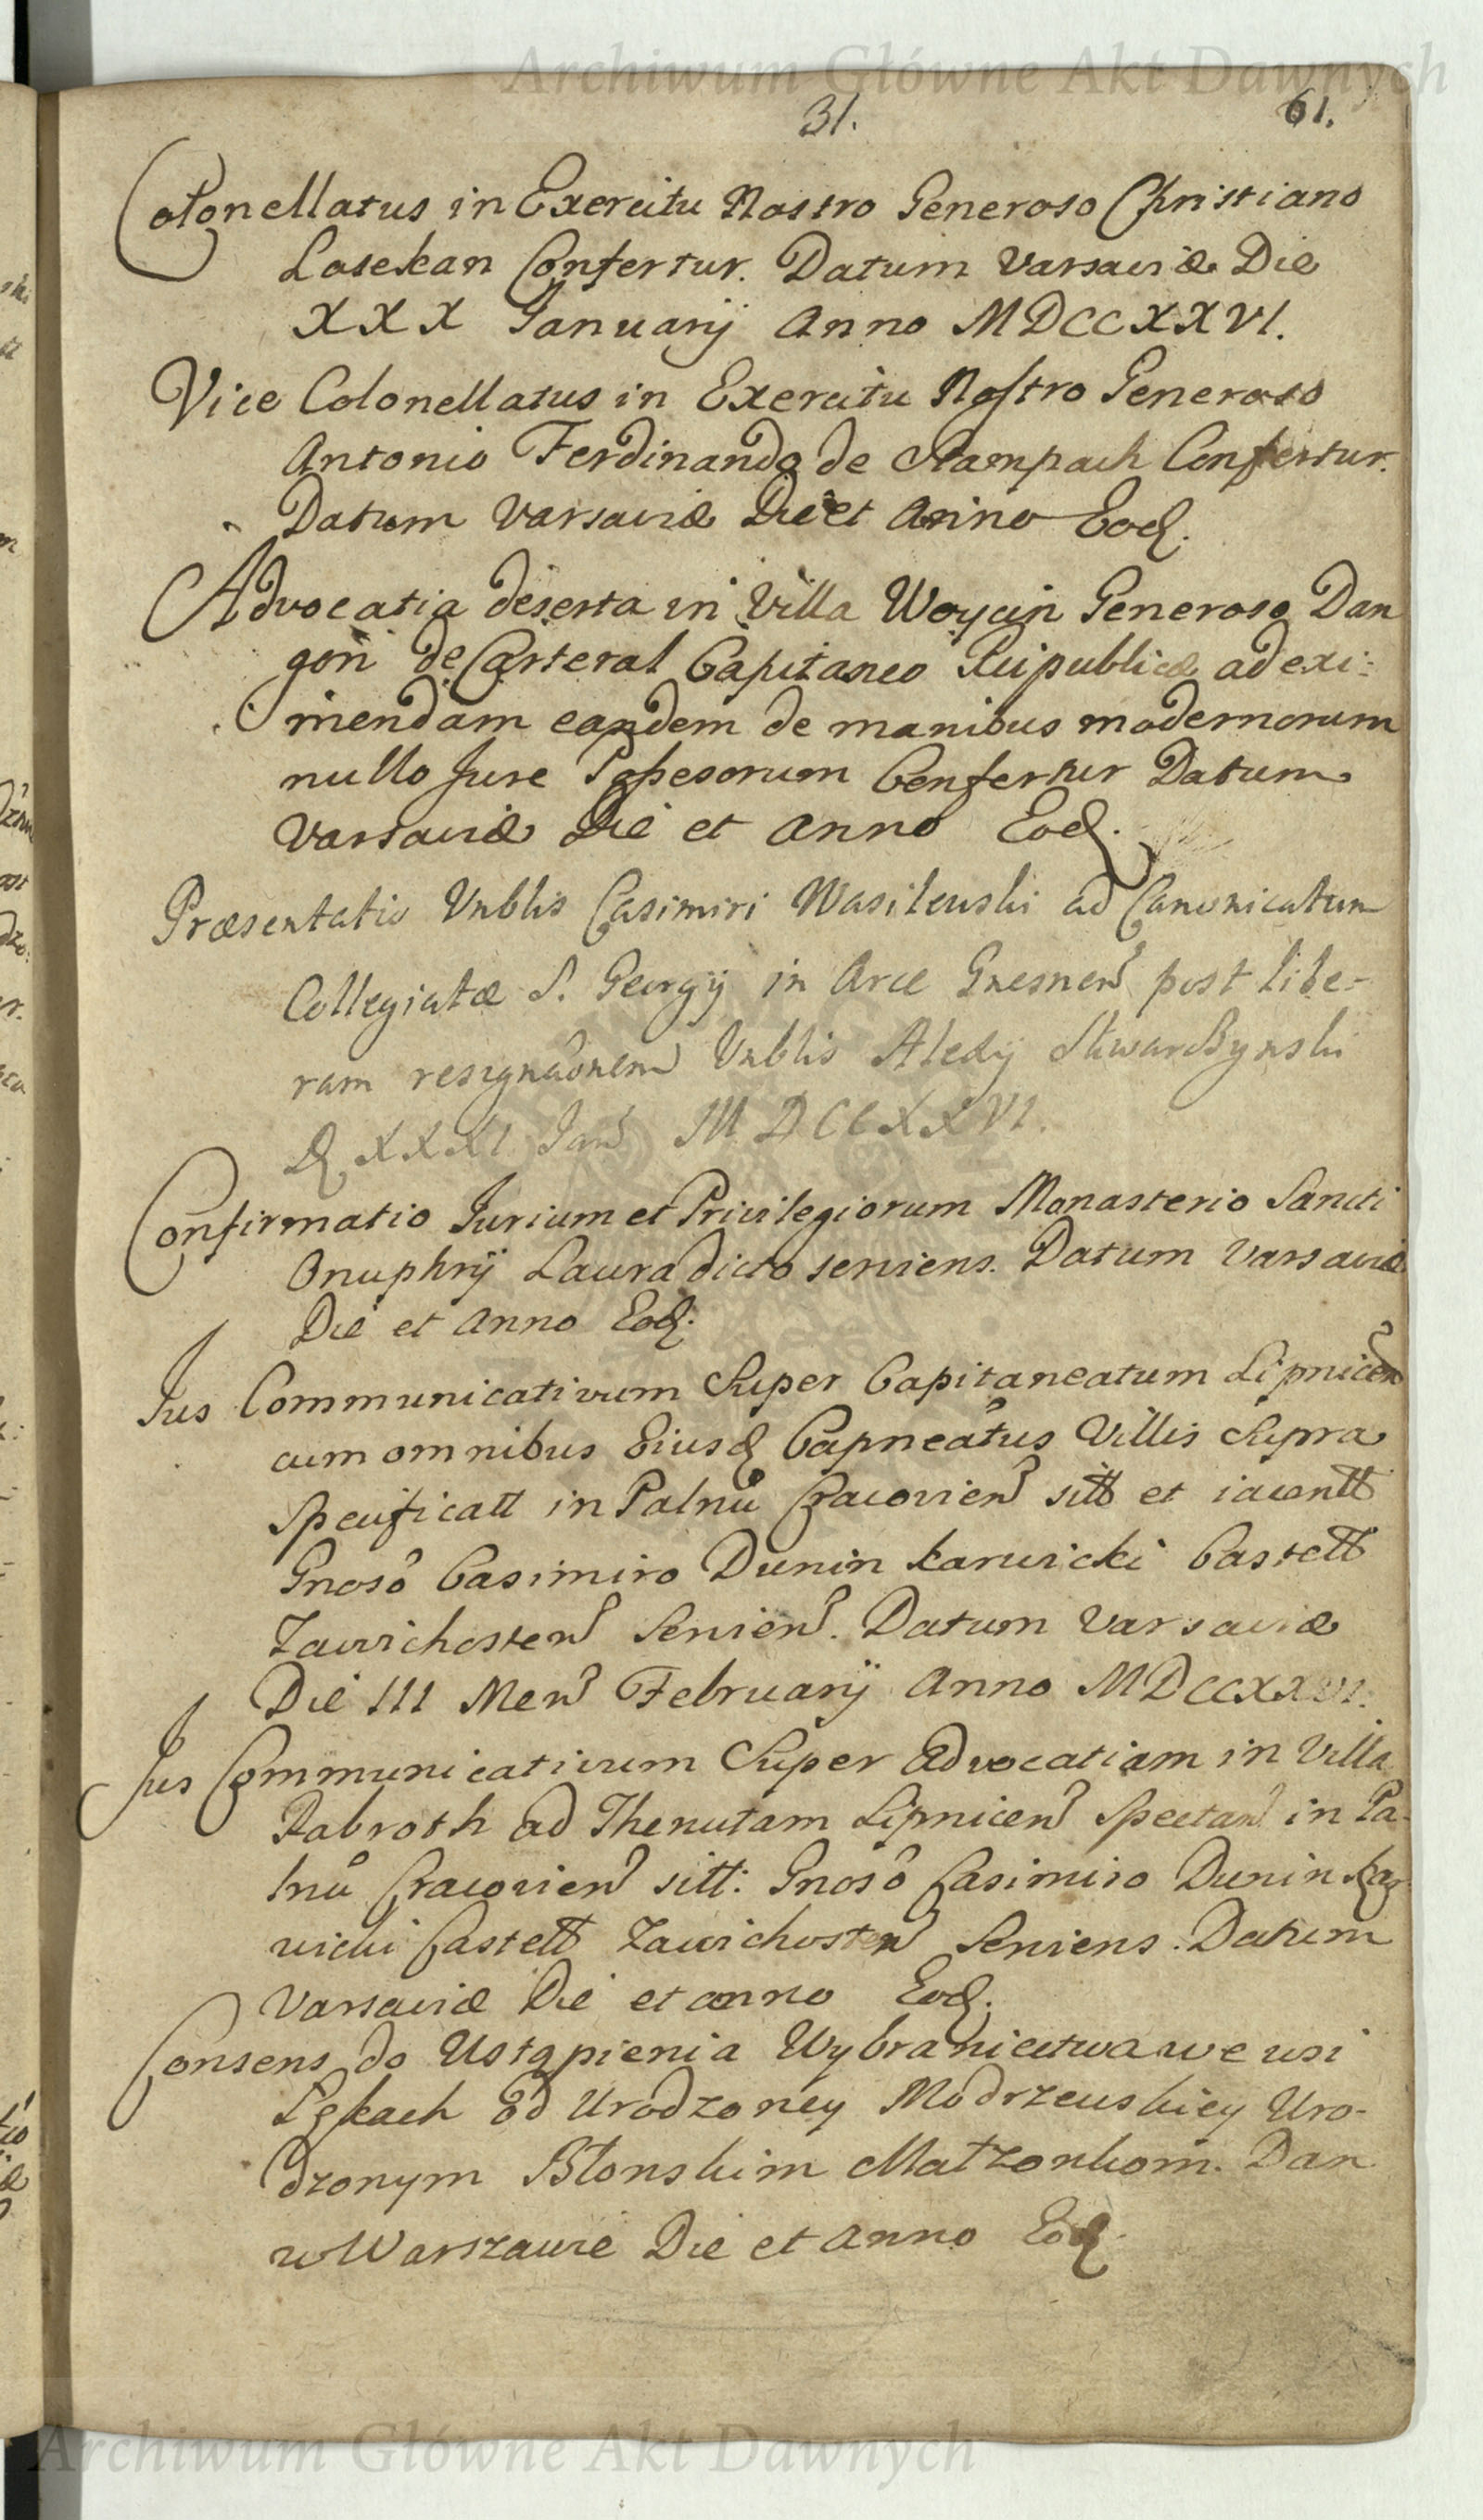 Archiwum Główne Akt Dawnych
31. 61.
Colonellatus in Exercitu Nostro Generoso Christiano
Losekan Confertur. Datum Varsaviæ Die
XXX Januarij Anno MDCCXXVI.
Vice Colonellatus in Exercitu Nostro Generoso
Antonio Ferdinando de Stampach Confertur.
Datum Varsaviæ Die et Anno Eod.
Advocatia deserta in Villa Woycin Generoso Dan
gon de Carteral Capitaneo Reipublicæ ad exi:
mendam eandem de manibus modernorum
nullo Jure Possesorum Confertur Datum
Varsaviæ Die et Anno Eod.
Præsentatio Vnblis Casimiri Wasilewski ad Canonicatum
Collegiatæ S. Georgij in Arce Gnesnen post libe-
ram resignaonem Vnblis Alexij
D XXXI Jan MDCCXXVI.
Confirmatio Jurium et Privilegiorum Monasterio Sancti
Onuphrij Laura dicto serviens. Datum Varsaviæ
Die et Anno Eod.
Jus Communicativum Super Capitaneatum Lipnicen
cum omnibus Eiusd Capneatus Villis Supra
Specificatt in Palnu Cracovien sitt et iacentt
Gnoso Casimiro Dunin Karwicki Castell
Zawichosten Servien. Datum Varsaviæ
Die III Men Februarij Anno MDCCXXVI.
Jus Communicativum Super Advocatiam in Villa
Rabroth ad Thenutam Lipnicen Spectan in Pa-
lnu Cracovien sitt: Gnoso Casimiro Dunin Kar
wicki Castell Zawichosten Serviens. Datum
Varsaviæ Die et anno Eod.
Consens do Ustąpienia Wybraniectwa we wsi
Łękach od Urodzoney Modrzewskiey Uro-
dzonym Błonskim Małzonkom. Dan
w Warszawie Die et Anno Eod.
Archiwum Główne Akt Dawnych